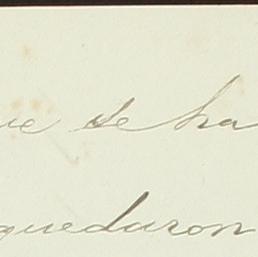 ue se ha
quedaron